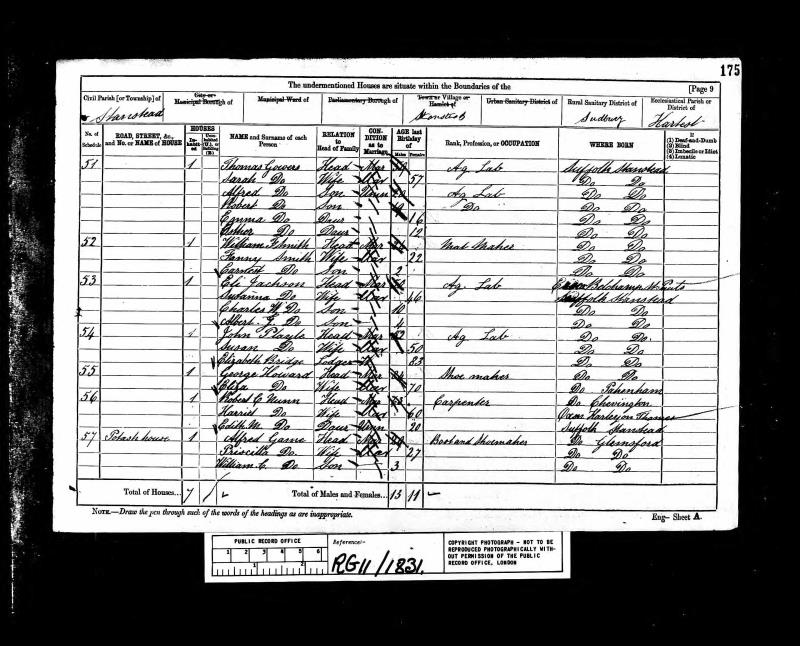 175
The undermentioned Houses are situate within the Boundaries of the [Page 9
Civil Parish [or Township] of
City or Municipal Borough of
Municipal Ward of
Parliamentary Borough of
Town or Village or Hamlet of
Urban Sanitary District of
Rural Sanitary District of
Ecclesiastical Parish or District of
Stanstead
Stanstead
Sudbury
Hartest
No. of Schedule
ROAD, STREET, &c., and No. or NAME of HOUSE
HOUSES
Inhabited
Uninhabited (U.), or Building (B.)
NAME and Surname of each Person
RELATION to Head of Family
CONDITION as to Marriage
AGE last Birthday of
Males
Females
Rank, Profession, or OCCUPATION
WHERE BORN
If
(1) Deaf-and-Dumb
(2) Blind
(3) Imbecile or Idiot
(4) Lunatic
51 1 Thomas Gowers Head Mar Ag Lab Suffolk Stanstead
Sarah Do Wife Mar 57 Do Do
Alfred Do Son Unm Ag Lab Do Do
Robert Do Son 19 Do Do Do
Emma Do Daur 16 Do Do
Esther Do Daur 12 Do Do
52 1 William Smith Head Mar Mat Maker Do Do
Fanny Smith Wife Mar 22 Do Do
Do Son 2 Do Do
53 1 Eli Jackson Head Mar Ag. Lab Essex Belchamp St Pauls
Susanna Do Wife Mar 46 Suffolk Stanstead
Charles W Do Son 10 Do Do
Albert J. Do Son 4 Do Do
54 1 John Playle Head Mar 52 Ag Lab Do Do.
Susan Do Wife Mar 50 Do Do
Elizabeth Bridge Lodger W 83 Do Do
55 1 George Howard Head Mar Shoe maker Do Do
Eliza Do Wife Mar 70 Do Pakenham
56 1 Robert C Nunn Head Mar Carpenter Do Chevington
Harriet Do Wife Mar 60 Oxon Harley on Thames
Edith M. Do Daur Unm 20 Suffolk Stanstead
57 Potash house 1 Alfred Game Head Mar Boot and Shoemaker Do Glemsford
Priscilla Do. Wife Mar 27 Do Do
William C. Do Son 3 Do Do
Total of Houses... 7 Total of Males and Females... 13 11
NOTE.—Draw the pen through such of the words of the headings as are inappropriate.
Eng- Sheet A.
PUBLIC RECORD OFFICE
1 2 3 4 5 6
1 2
Reference:-
RG11/1831.
COPYRIGHT PHOTOGRAPH - NOT TO BE REPRODUCED PHOTOGRAPHICALLY WITHOUT PERMISSION OF THE PUBLIC RECORD OFFICE, LONDON